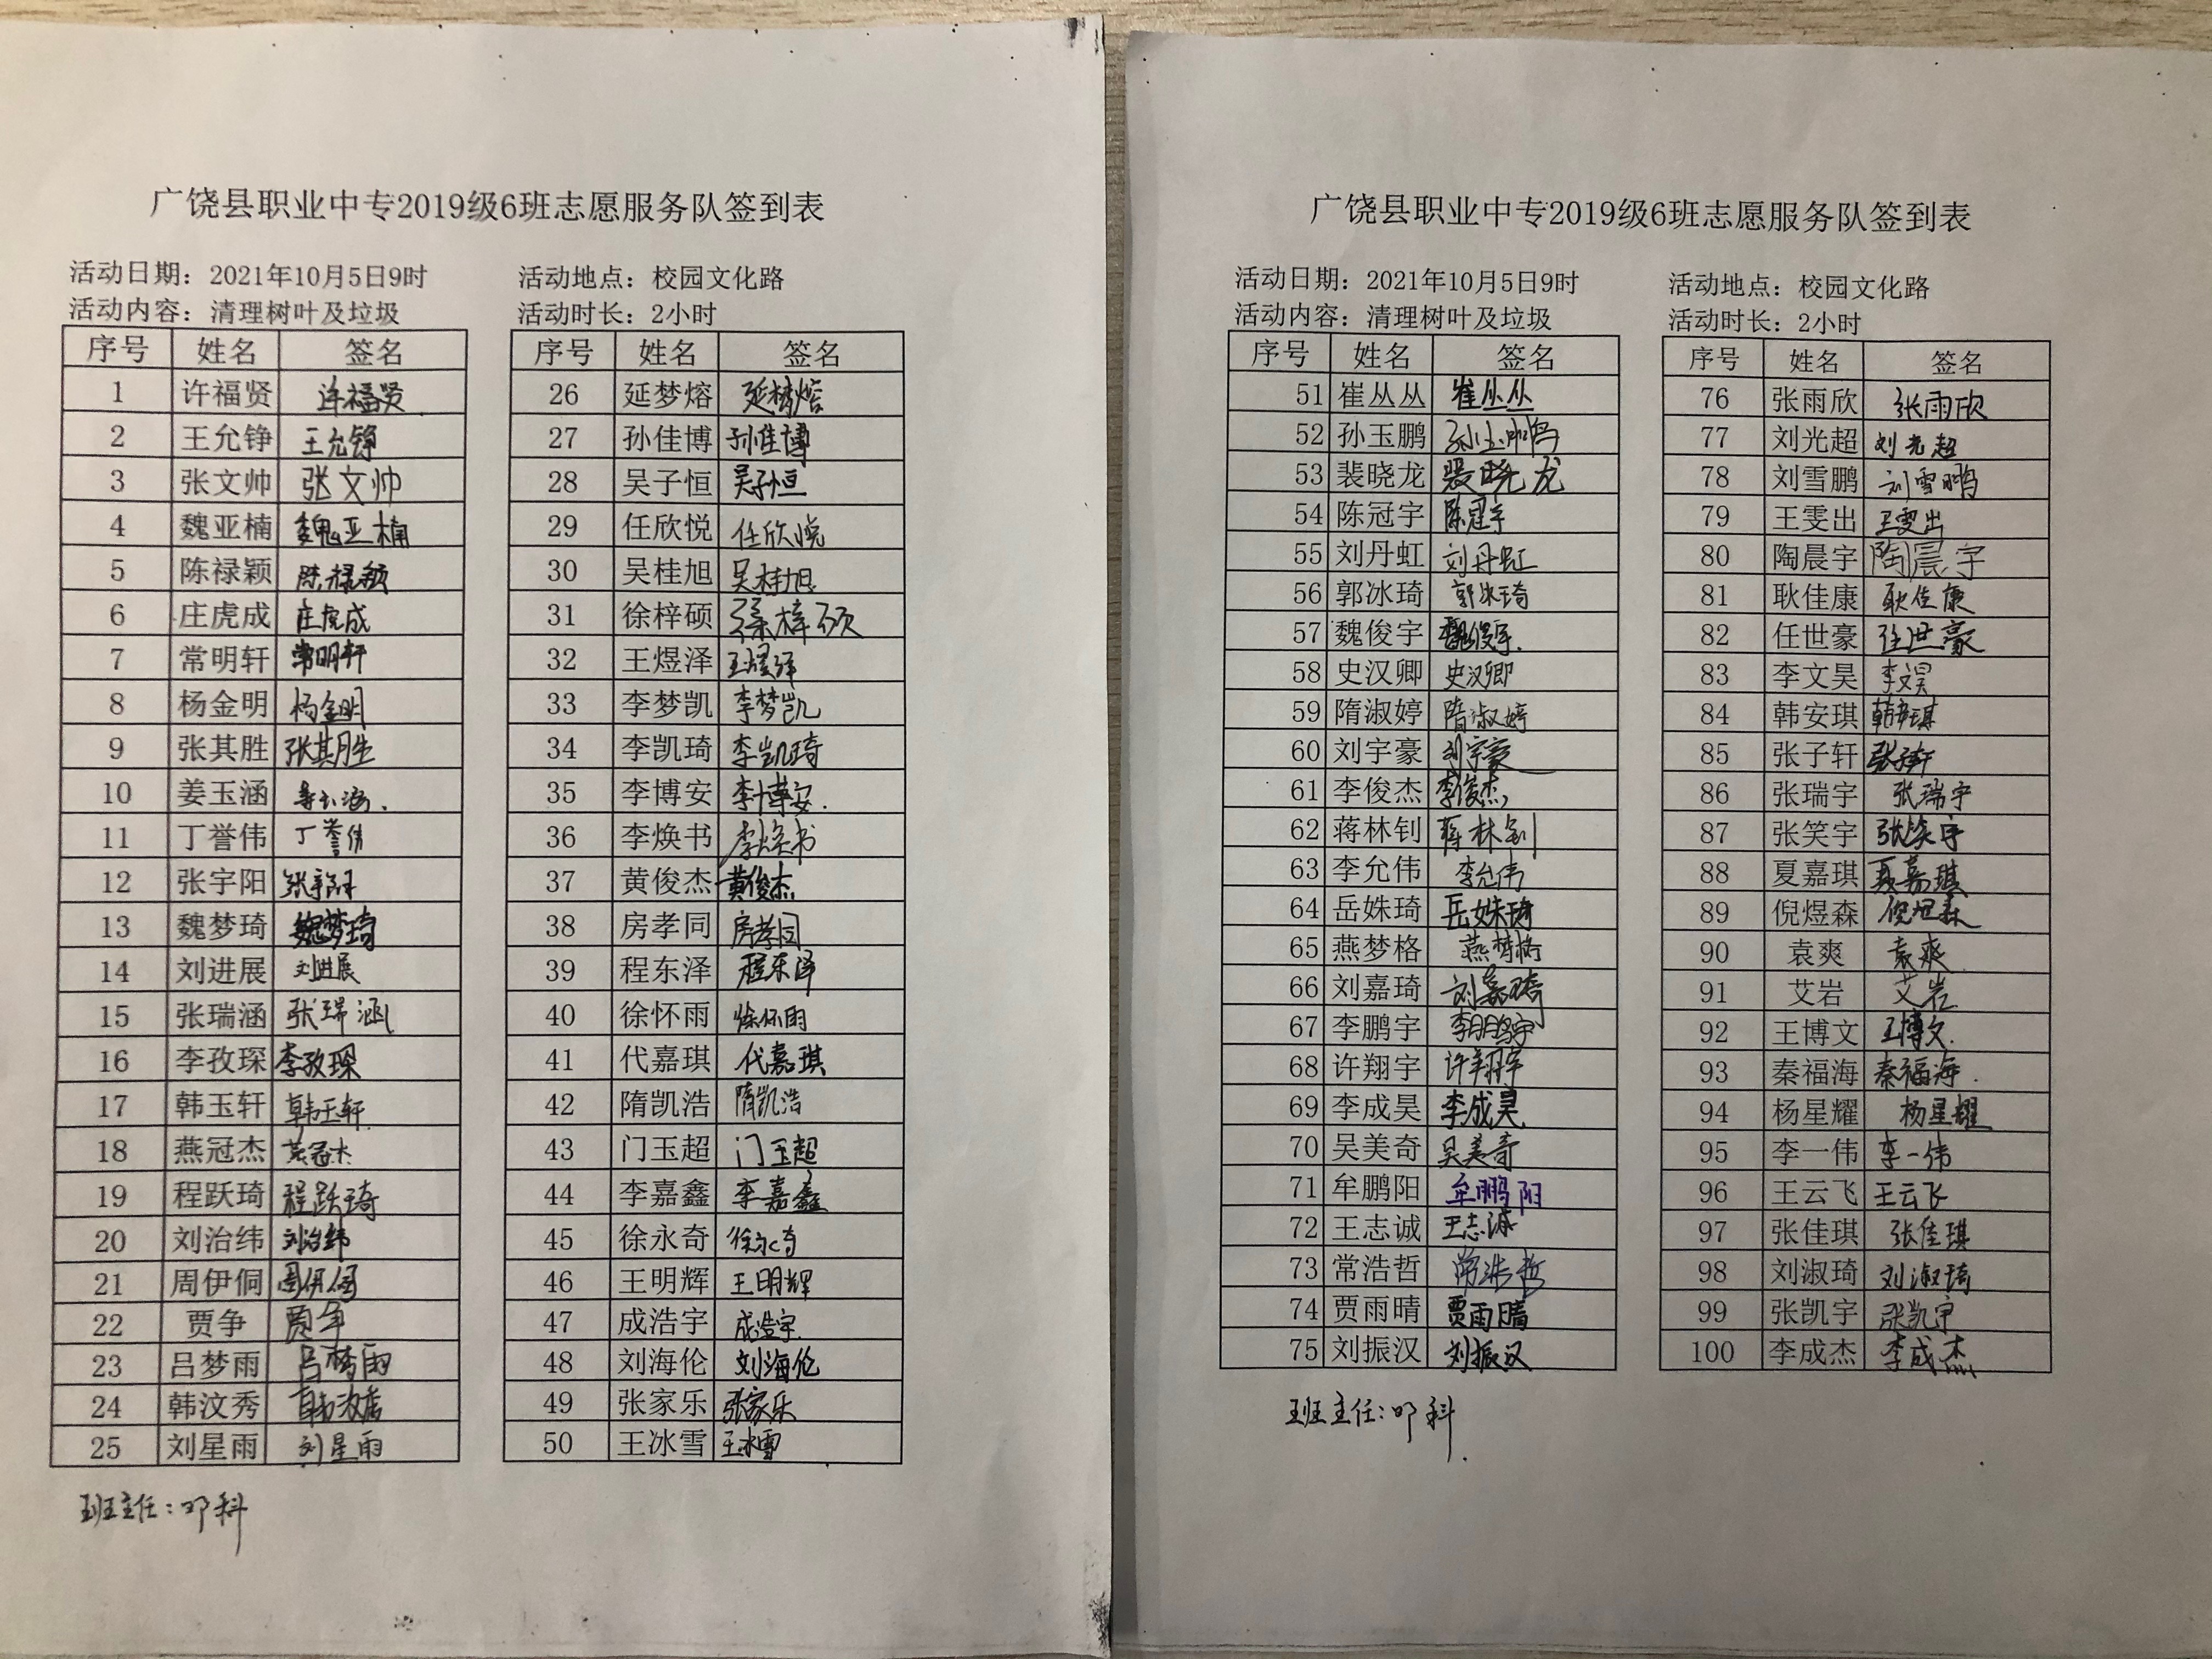 广饶县职业中专2019级6班志愿服务队签到表
活动日期：2021年10月5日9时 活动地点：校园文化路
活动内容：清理树叶及垃圾 活动时长：2小时
序号 姓名 签名 序号 姓名 签名
1 许福贤 许福贤 26 延梦熔 延梦熔
2 王允铮 王允铮 27 孙佳博 孙佳博
3 张文帅 张文帅 28 吴子恒 吴子恒
4 魏亚楠 魏亚楠 29 任欣悦 任欣悦
5 陈禄颖 陈禄颖 30 吴桂旭 吴桂旭
6 庄虎成 庄虎成 31 徐梓硕 徐梓硕
7 常明轩 常明轩 32 王煜泽 王煜泽
8 杨金明 杨金明 33 李梦凯 李梦凯
9 张其胜 张其胜 34 李凯琦 李凯琦
10 姜玉涵 姜玉涵 35 李博安 李博安
11 丁誉伟 丁誉伟 36 李焕书 李焕书
12 张宇阳 张宇阳 37 黄俊杰 黄俊杰
13 魏梦琦 魏梦琦 38 房孝同 房孝同
14 刘进展 刘进展 39 程东泽 程东泽
15 张瑞涵 张瑞涵 40 徐怀雨 徐怀雨
16 李孜琛 李孜琛 41 代嘉琪 代嘉琪
17 韩玉轩 韩玉轩 42 隋凯浩 隋凯浩
18 燕冠杰 燕冠杰 43 门玉超 门玉超
19 程跃琦 程跃琦 44 李嘉鑫 李嘉鑫
20 刘治纬 刘治纬 45 徐永奇 徐永奇
21 周伊侗 周伊侗 46 王明辉 王明辉
22 贾争 贾争 47 成浩宇 成浩宇
23 吕梦雨 吕梦雨 48 刘海伦 刘海伦
24 韩汶秀 韩汶秀 49 张家乐 张家乐
25 刘星雨 刘星雨 50 王冰雪 王冰雪
班主任：邓科
广饶县职业中专2019级6班志愿服务队签到表
活动日期：2021年10月5日9时 活动地点：校园文化路
活动内容：清理树叶及垃圾 活动时长：2小时
序号 姓名 签名 序号 姓名 签名
51 崔丛丛 崔丛丛 76 张雨欣 张雨欣
52 孙玉鹏 孙玉鹏 77 刘光超 刘光超
53 裴晓龙 裴晓龙 78 刘雪鹏 刘雪鹏
54 陈冠宇 陈冠宇 79 王雯出 王雯出
55 刘丹虹 刘丹虹 80 陶晨宇 陶晨宇
56 郭冰琦 郭冰琦 81 耿佳康 耿佳康
57 魏俊宇 魏俊宇 82 任世豪 任世豪
58 史汉卿 史汉卿 83 李文昊 李文昊
59 隋淑婷 隋淑婷 84 韩安琪 韩安琪
60 刘宇豪 刘宇豪 85 张子轩 张子轩
61 李俊杰 李俊杰 86 张瑞宇 张瑞宇
62 蒋林钊 蒋林钊 87 张笑宇 张笑宇
63 李允伟 李允伟 88 夏嘉琪 夏嘉琪
64 岳姝琦 岳姝琦 89 倪煜森 倪煜森
65 燕梦格 燕梦格 90 袁爽 袁爽
66 刘嘉琦 刘嘉琦 91 艾岩 艾岩
67 李鹏宇 李鹏宇 92 王博文 王博文
68 许翔宇 许翔宇 93 秦福海 秦福海
69 李成昊 李成昊 94 杨星耀 杨星耀
70 吴美奇 吴美奇 95 李一伟 李一伟
71 牟鹏阳 牟鹏阳 96 王云飞 王云飞
72 王志诚 王志诚 97 张佳琪 张佳琪
73 常浩哲 常浩哲 98 刘淑琦 刘淑琦
74 贾雨晴 贾雨晴 99 张凯宇 张凯宇
75 刘振汉 刘振汉 100 李成杰 李成杰
班主任：邓科